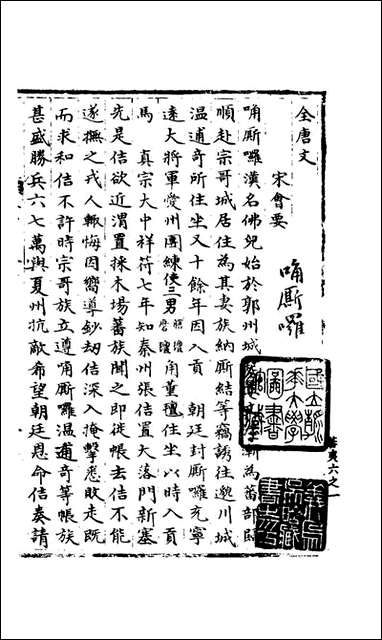 全唐文
宋會要
唃厮囉
唃厮囉漢名佛兒始於郭州城
漸為首部
順赴宗哥城居住為其妻族納厮結等竊誘往邈川城
温逋奇所住坐又十餘年因入貢 朝廷封厮囉充寧
逺大將軍愛州團練使三男 瞎氊 磨氊 角董氊住坐以時入貢
馬 真宗大中祥符七年知秦州張佶置大落門新塞
先是佶欲近渭置採木塲蕃族聞之即徙帳去佶不能
遂撫之戎人輙悔因嚮導鈔刼佶深入掩擊悉敗走既
而求和佶不許時宗哥族立遵唃厮囉温逋奇等帳族
甚盛勝兵六七萬與夏州抗敵希望朝廷恩命佶奏請
國立部
平大學
圖書
館藏
蕃夷六之一